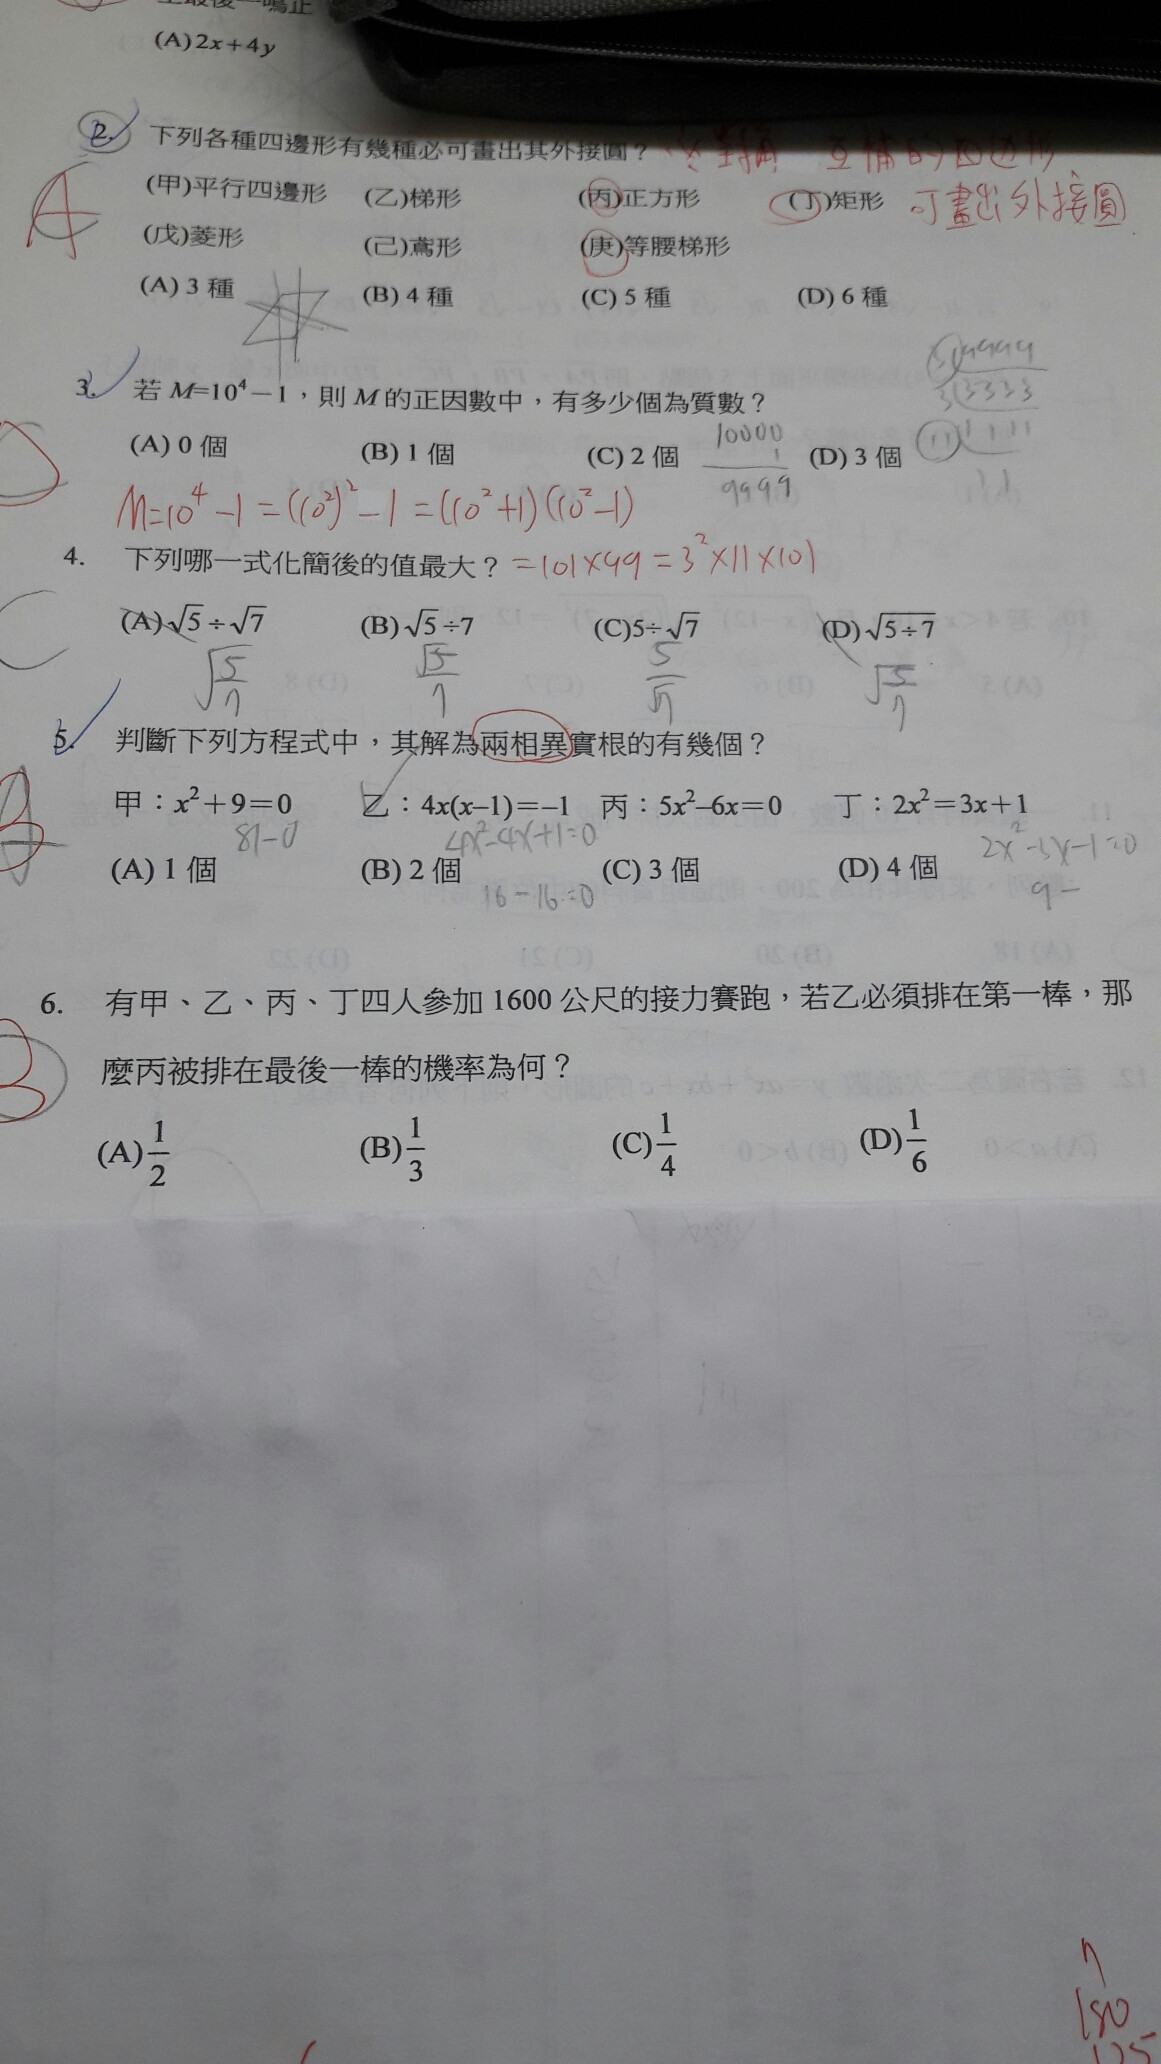 (A)2x+4y
2. 下列各種四邊形有幾種必可畫出其外接圓？ 對角互補的四边形
(甲)平行四邊形 (乙)梯形 (丙)正方形 (丁)矩形 可畫出外接圓
A
(戊)菱形 (己)鳶形 (庚)等腰梯形
(A) 3 種 (B) 4 種 (C) 5 種 (D) 6 種
3. 若 M=10⁴－1，則 M 的正因數中，有多少個為質數？
3 9999
3 3333
11 1111
(A) 0 個 (B) 1 個 (C) 2 個 (D) 3 個
10000
1
9999
D
M=10⁴-1=(10²)²-1=(10²+1)(10²-1)
=101×99=3²×11×101
4. 下列哪一式化簡後的值最大？
C
(A)√5÷√7 (B)√5÷7 (C)5÷√7 (D)√5÷7
√5/7 √5/7 5/√7 √5/7
5. 判斷下列方程式中，其解為兩相異實根的有幾個？
B
甲：x²＋9＝0 乙：4x(x–1)＝–1 丙：5x²–6x＝0 丁：2x²＝3x＋1
81-0 4x²-4x+1=0 2x²-3x-1=0
(A) 1 個 (B) 2 個 (C) 3 個 (D) 4 個
16-16=0 9-
6. 有甲、乙、丙、丁四人參加 1600 公尺的接力賽跑，若乙必須排在第一棒，那
麼丙被排在最後一棒的機率為何？
B
(A)1/2 (B)1/3 (C)1/4 (D)1/6
180